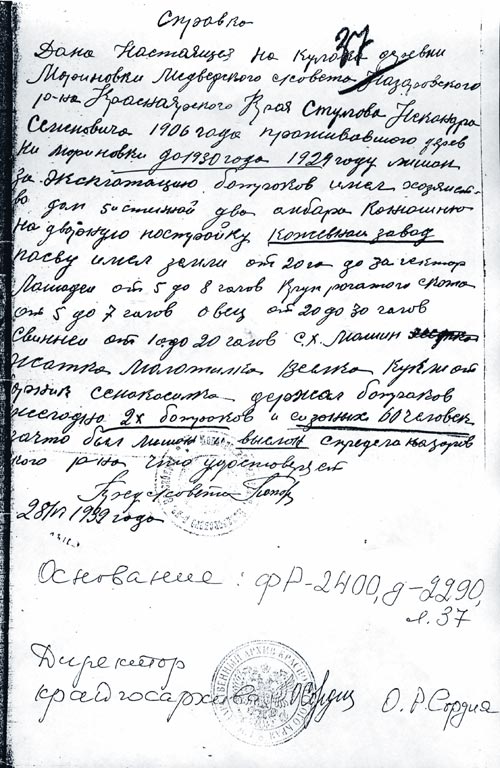 Справка
37
Дана Настаящея на Кулака деревни
Мориновки Медведского совета Назаровского
р-на Красноярского Края Стулова
Семеновича 1906 года проживавшого в дерев
ки Мориновки до 1930 года 1929 году лишон
за Эксплатацию батроков имел хозяйст-
во дом 5и стиной два анбара Конюшню
надворную постройку Кожевный завод
пасву имел земли от 20 га до За гектор
Лашадей от 5 до 8 галов Круп рогатого скота
от 5 до 7 галов овец от 20 до 30 галов
Свинией от 1 до 20 галов с.х. Машин
жатка Малотилка Веялка Куклеот
сенакасилка держал батраков
ежегодно 2х батроков и сизоних 60 человек
зачто был лишон выслон с предела назаров
кого р-на что удостоверяет
Пред Совета
28/ 1939 года
Основание: ФР-2400, д-2290,
л. 37
Директор
крайгосархива
О.Р. Сордия